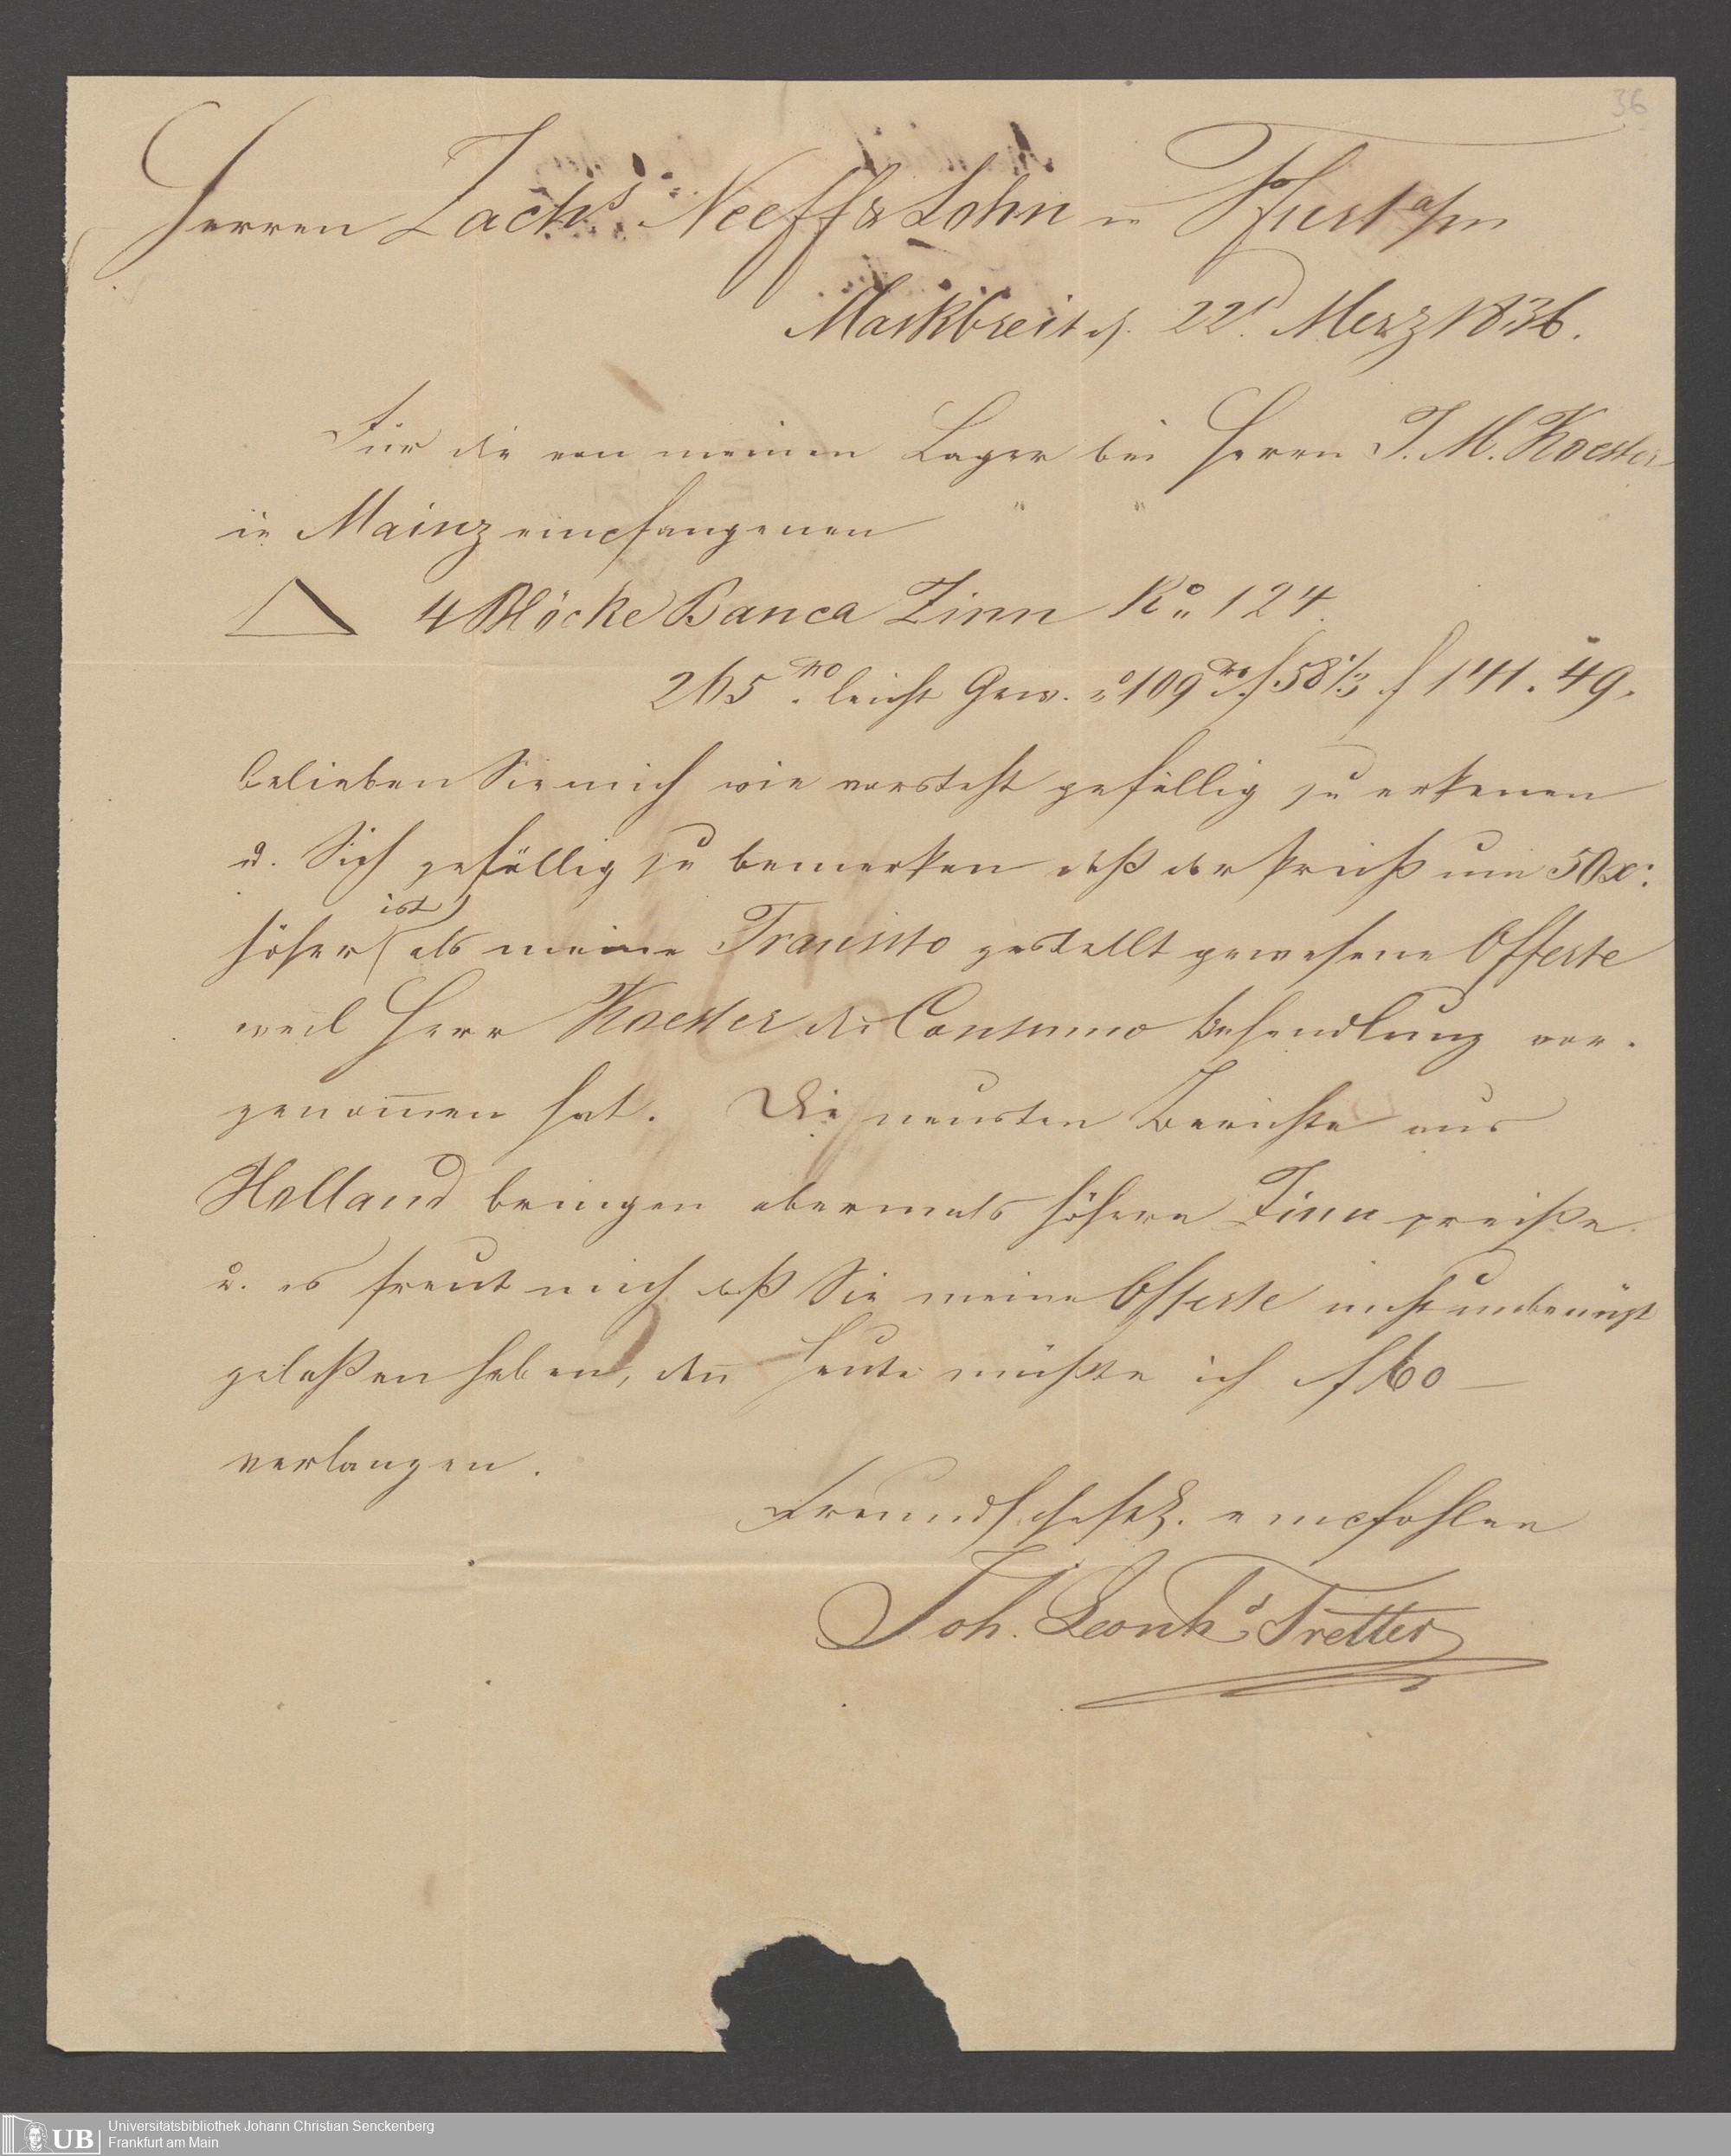 36
Herren Zach.s Neeff & Sohn in Ffurt a/m
Markbreit d. 22.t Merz 1836.
Für die von meinem Lager bei Herrn J. M. Koester
in Mainz empfangenen " "
4 Blöcke Banca Zinn Ko. 124
265 leicht Gew. 109 f 58 1/3 f 141.49.
belieben Sie mich wie vorsteht gefällig zu erkenen
u. Sich gefällig zu bemerken daß der Preiß um 50 x.
höher ist als meine Transito gestellt gewesene Offerte
weil Herr Koester die Consumo Behandlung vor-
genom̄en hat. Die neusten Berichte aus
Holland bringen abermals höhere Zinn preiße
u. es freut mich daß Sie meine Offerte nicht unbenüzt
gelaßen haben, den̄ heute müßte ich f 60 —
verlangen.
Freundschaftl. empfohlen
Joh. Leonh.d Tretter
UB
Universitätsbibliothek Johann Christian Senckenberg
Frankfurt am Main